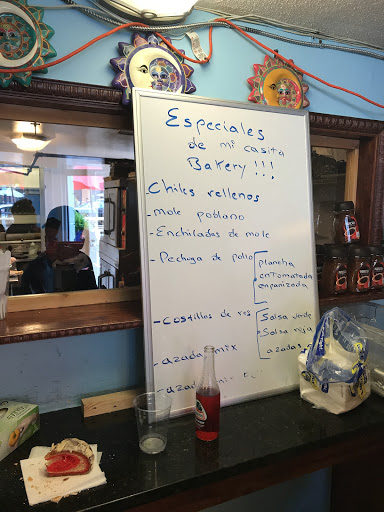 Especiales
de mi casita
Bakery !!!
Chiles rellenos
- mole poblano
- Enchiladas de mole
- Pechuga de pollo
plancha
entomatada
empanizada
- Costillas de res
Salsa verde
Salsa roja
azadas
- azada mix
- azada